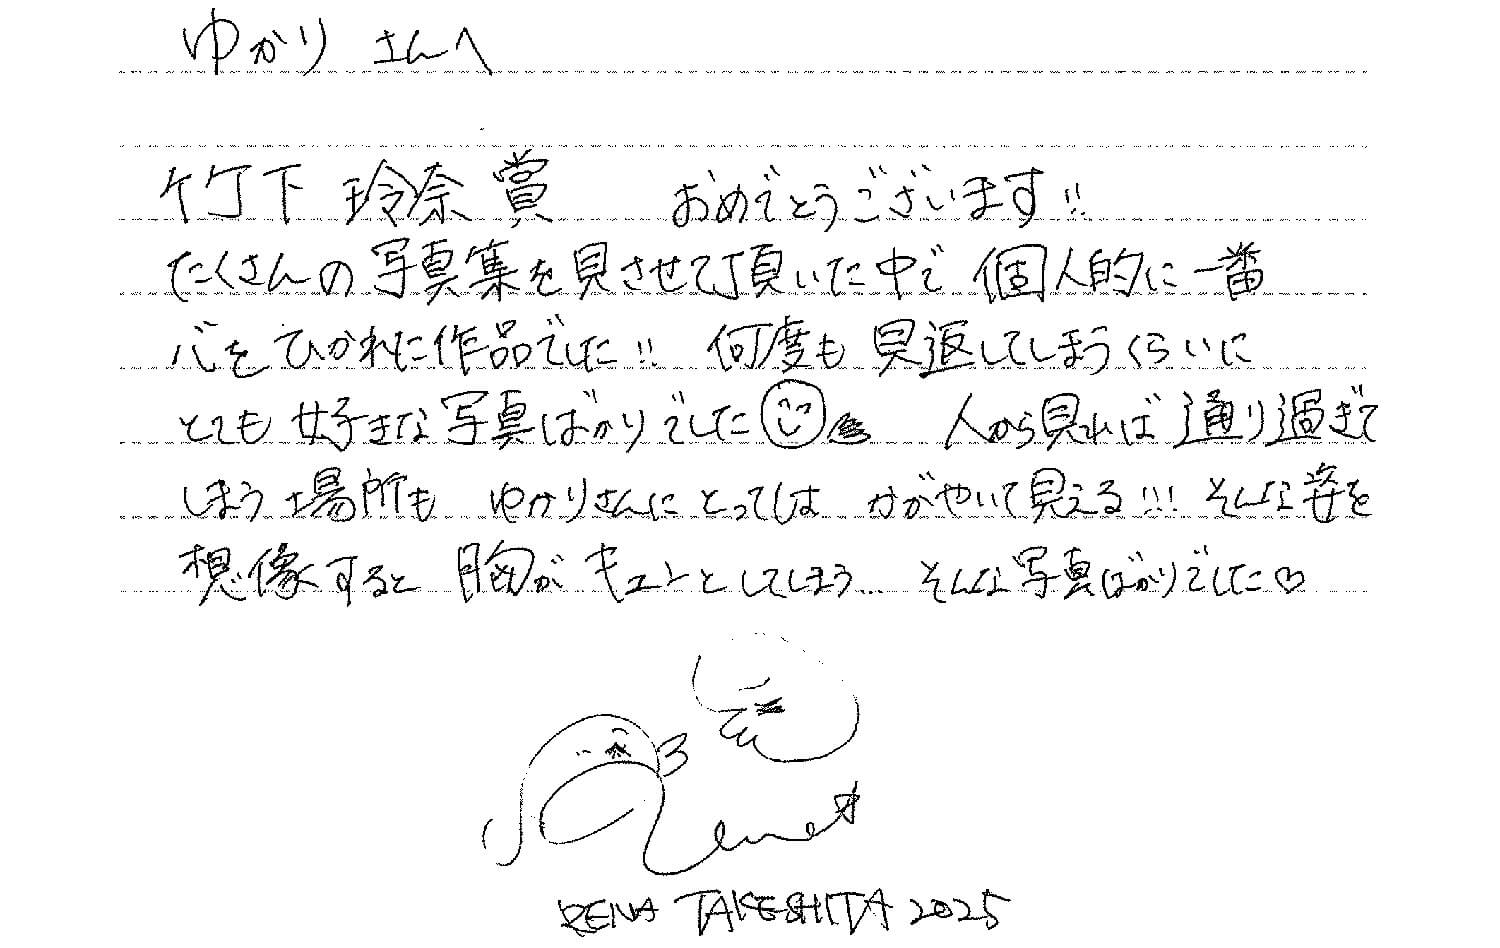 ゆかり さんへ
竹下 玲奈 賞 おめでとうございます!!
たくさんの写真集を見させて頂いた中で 個人的に一番
心をひかれた作品でした!! 何度も見返してしまうくらいに
とても好きな写真ばかりでした 人から見れば通り過ぎて
しまう場所も ゆかりさんにとっては かがやいて見える!!! そんな姿を
想像すると 胸がキュンとしてしまう... そんな写真ばかりでした♡
Rena
RENA TAKESHITA 2025